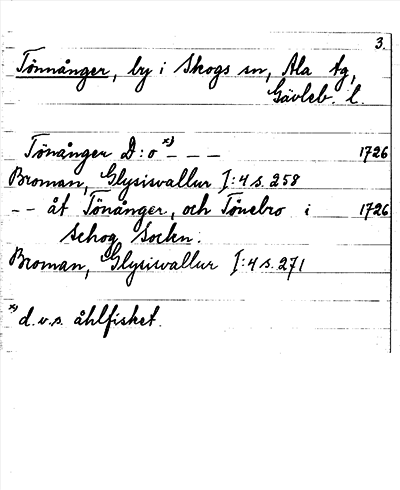 3.
Tönnånger, by i Skogs sn, Ala tg,
Gävleb. l.
Tönånger D:o x) – – – 1726
Broman, Glysisvallur I:4 s. 258
– – åt Tönånger, och Tönebro i 1726
Schog Sockn.
Broman, Glysisvallur I:4 s. 271
x) d.v.s. åhlfisket.